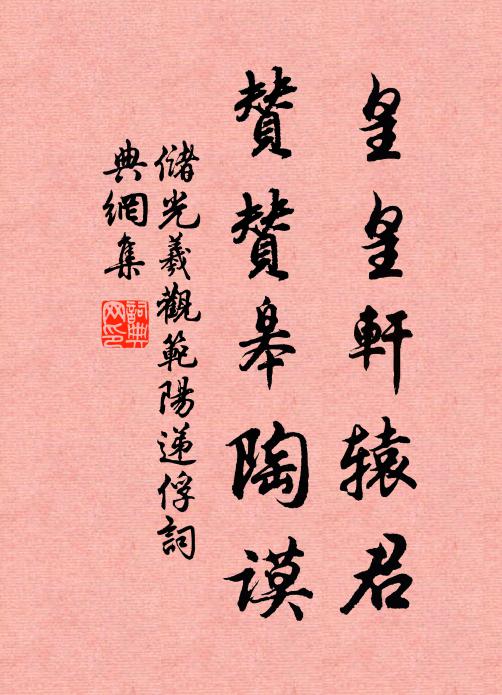 皇皇軒辕君
贊贊皋陶谟
儲光羲觀範陽递俘詞
典網集
詞典網印